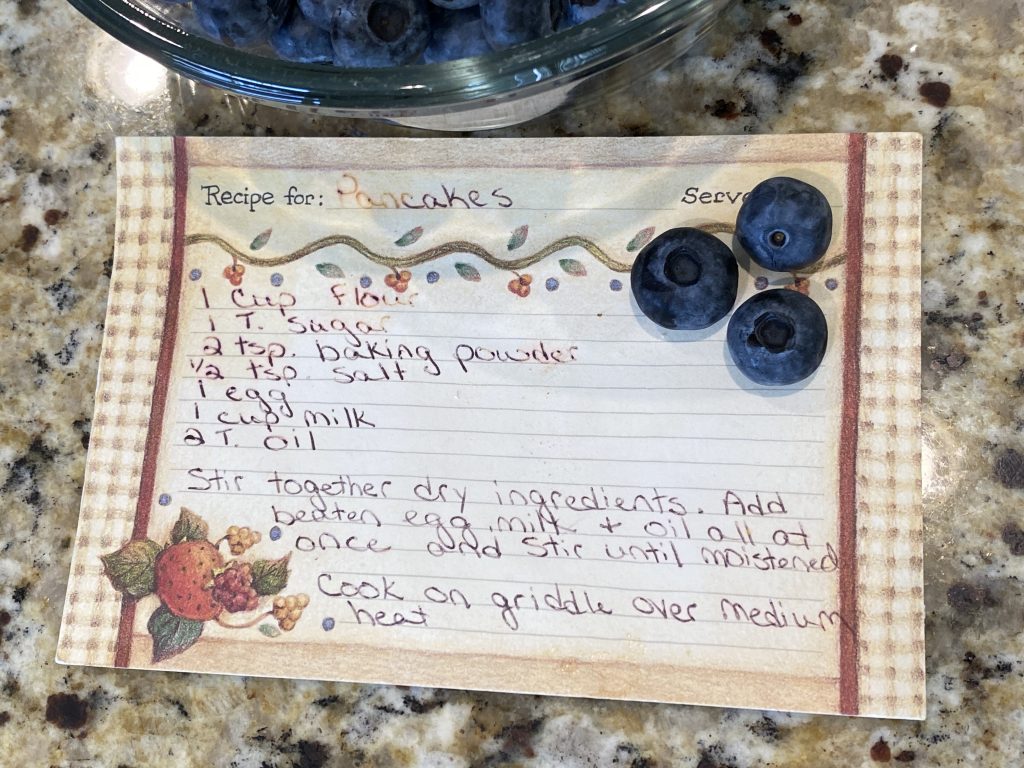 Recipe for: Pancakes
1 cup flour
1 T. sugar
2 tsp. baking powder
1/2 tsp salt
1 egg
1 cup milk
2 T. oil
Stir together dry ingredients. Add
beaten egg, milk + oil all at
once and stir until moistened
Cook on griddle over medium
heat